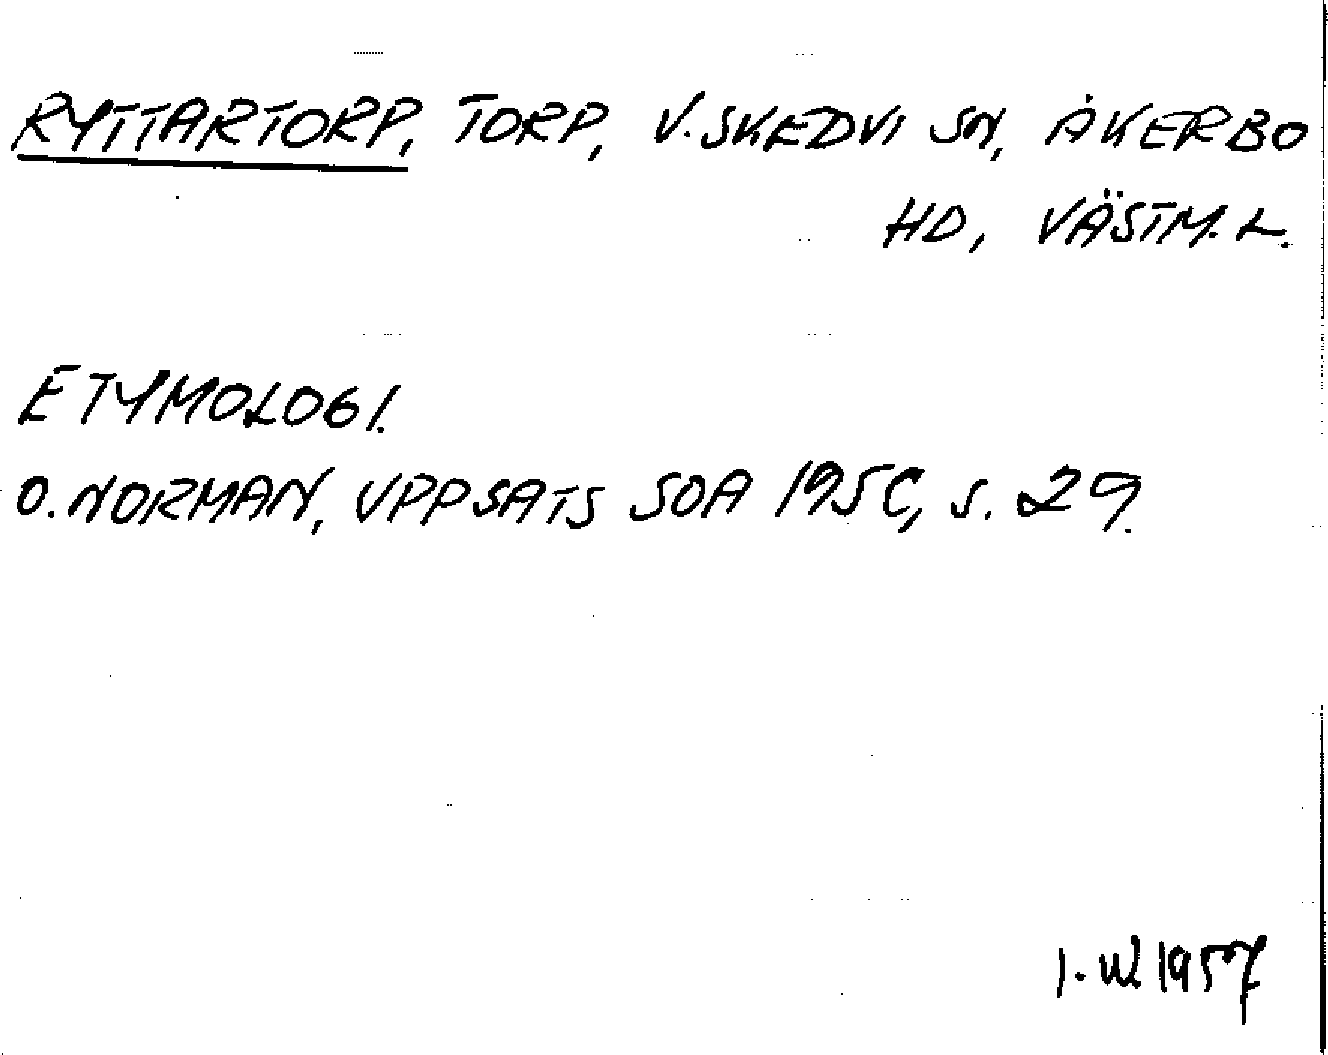 RYTTARTORP, TORP, V. SKEDVI SN, ÅKERBO
HD, VÄSTM. L.
ETYMOLOGI.
O. NORMAN, UPPSATS SOA 1956, S. 29.
1957